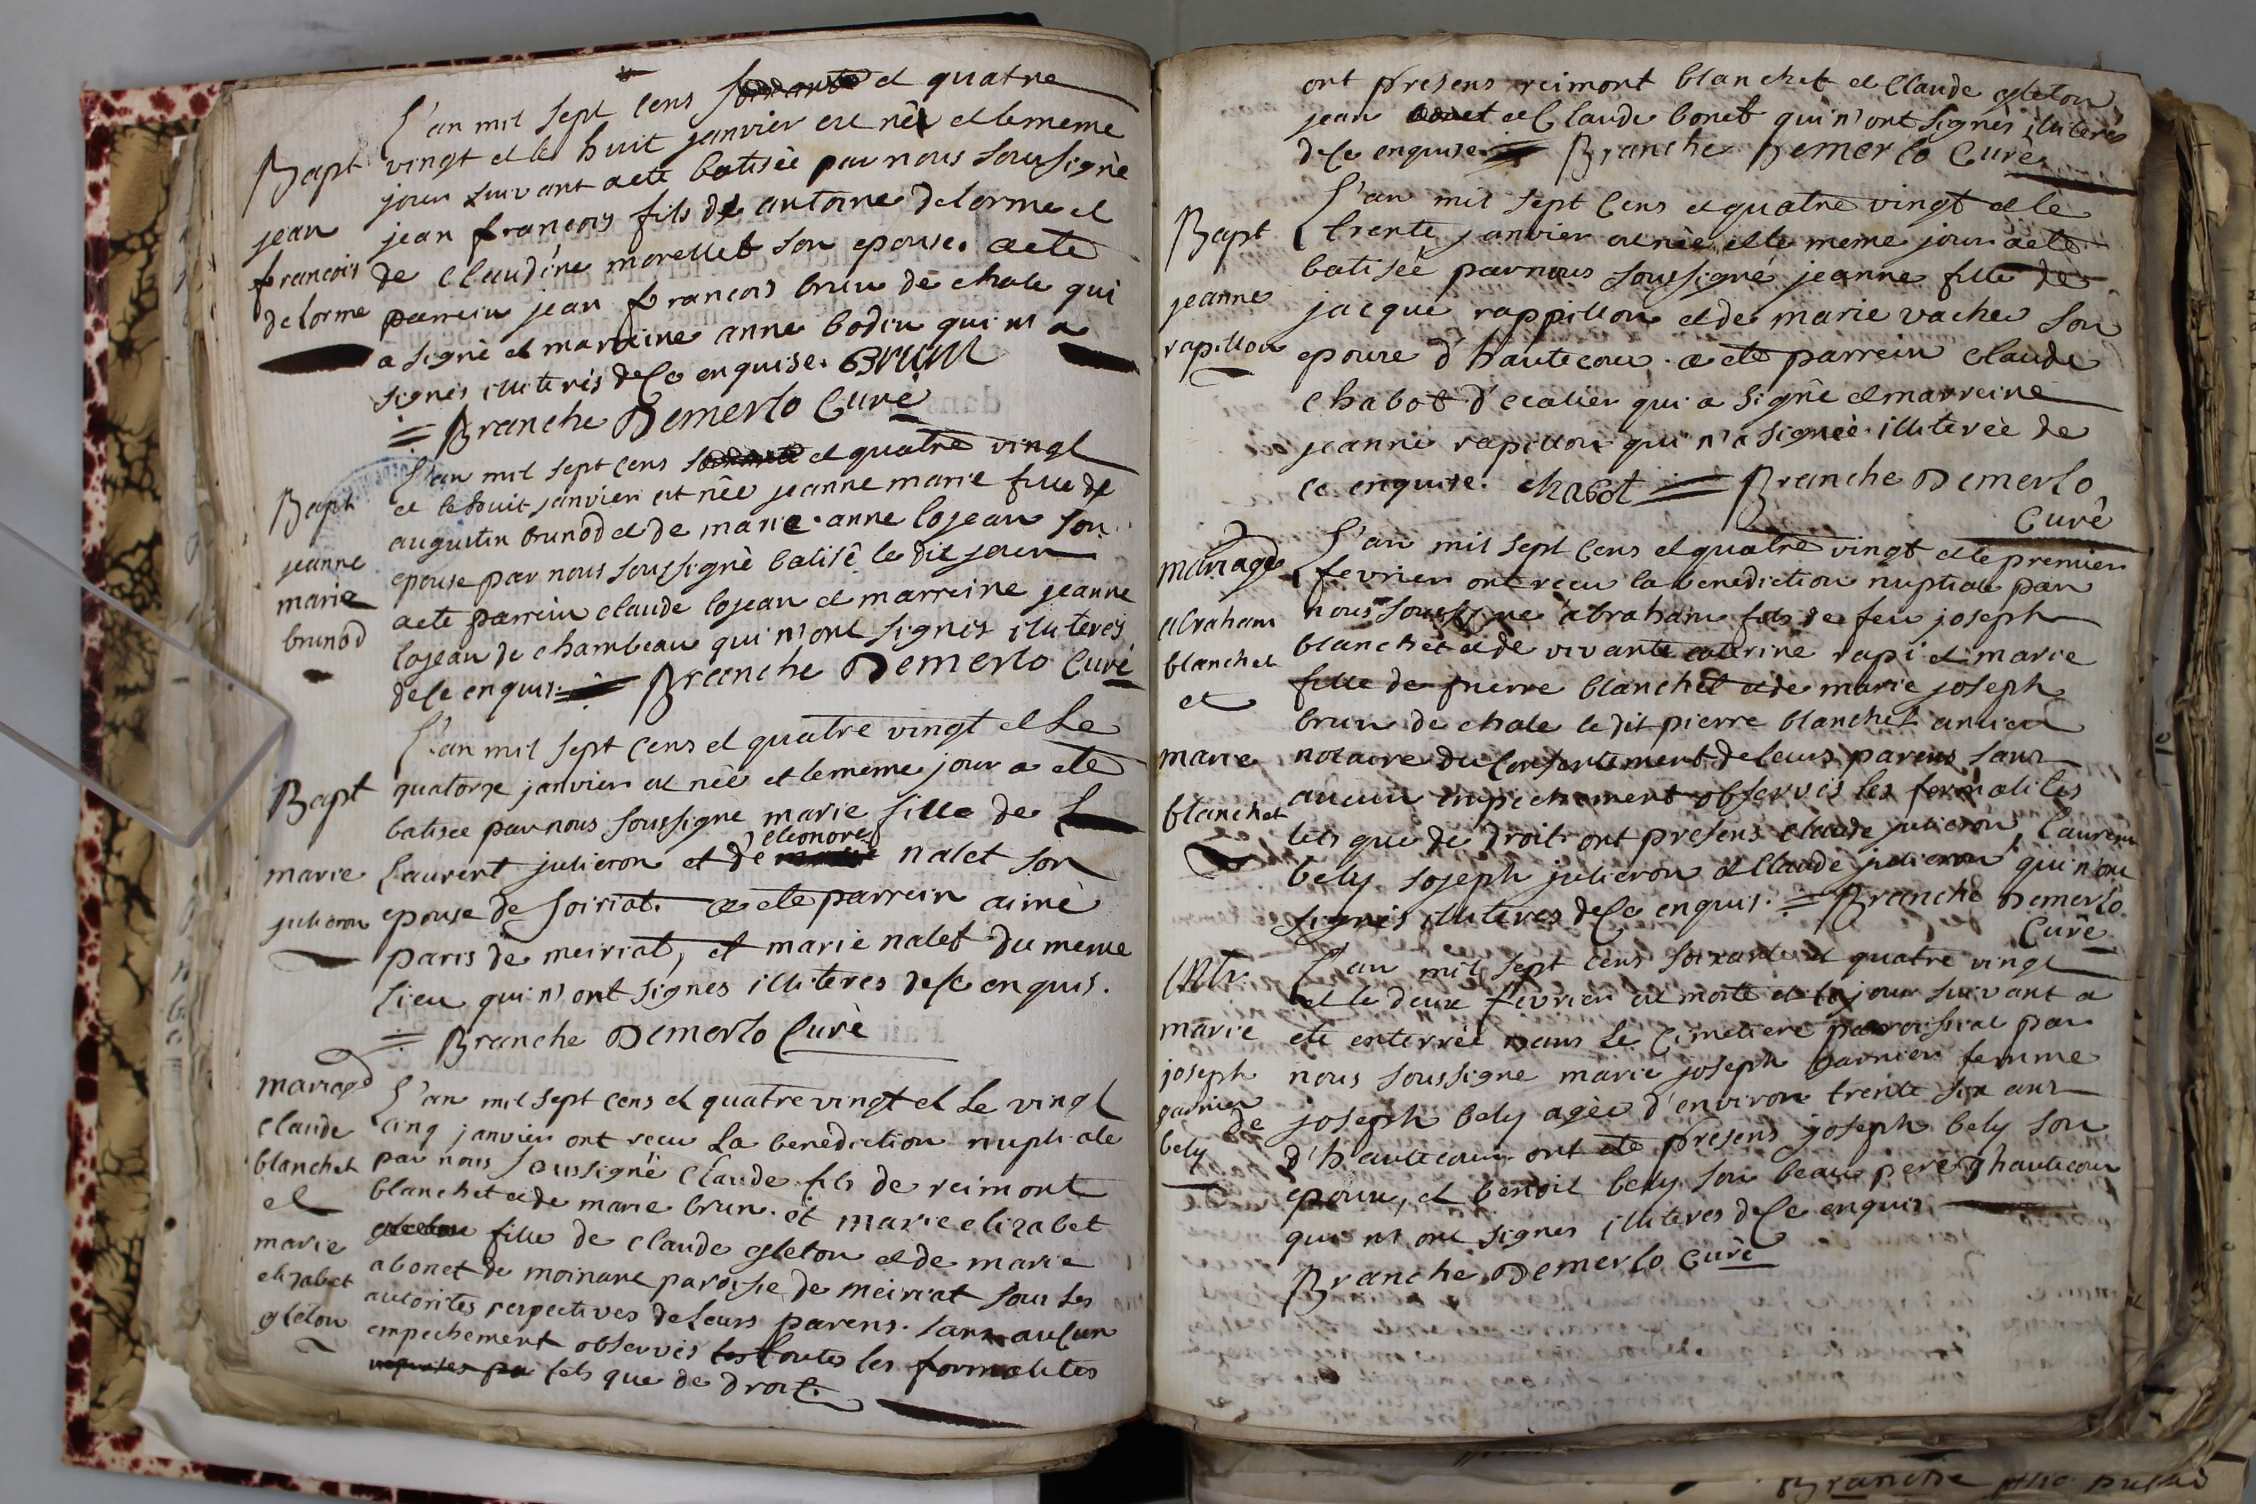 L'an mil sept cens soixante et quatre
Bapt vingt et le huit janvier est né et le meme
jour suivant a ete batisée par nous soussigné
jean jean francois fils de antoine delorme et
francois de claudine morellet son epouse. a ete
delorme parrein jean francois brun de chale qui
a signé et marreine anne bodin qui n'a
signés illiterés de ce enquise. BRUN
Branche Demerlo Curé
L'an mil sept cens soixante et quatre vingt
Bapt et le huit janvier est née jeanne marie fille de
augustin brunod et de marie anne lojean son
jeanne epouse par nous soussigné batisé le dit jour
marie a ete parrein claude lojean et marreine jeanne
brunod lojean de chambeau qui n'ont signés illiterés
de ce enquis. Branche Demerlo Curé
L'an mil sept cens et quatre vingt et le
Bapt quatorze janvier est née et le meme jour a ete
batisee par nous soussigne marie fille de
eleonore
marie laurent julieron et de nalet son
julieron epouse de soiriat. a ete parrein aimé
paris de meiriat, et marie nalet du meme
lieu qui n'ont signes illiteres de ce enquis.
Branche Demerlo Curé
mariage L'an mil sept cens et quatre vingt et le vingt
claude cinq janvier ont recu la benediction nuptiale
blanchet par nous soussigné claude fils de reimont
et blanchet et de marie brun. et marie elizabet
marie gleton fille de claude gleton et de marie
elizabet abonet de moinant paroisse de meiriat sous les
gleton autorites respectives de leurs parens. sans aucun
empechement observés les toutes les formalites
requises pa tels que de droit.
ont presens reimont blanchet et claude gleton
jean bonet et Claude bonet qui n'ont signés illiterés
de ce enquise. Branche Demerlo Curé
L'an mil sept cens et quatre vingt et le
Bapt trente janvier est née et le meme jour a ete
batisée par nous soussigné jeanne fille de
jeanne jacque rappillon et de marie vache son
rapillon epouse d'hautecour. a ete parrein claude
chabot d'ecalier qui a signé et marreine
jeanne rapillon qui n'a signée illiterée de
ce enquise. chabot Branche Demerlo
Curé
mariage L'an mil sept cens et quatre vingt et le premier
fevrier ont recu la benediction nuptiale par
abraham nous soussigne abraham fils de feu joseph
blanchet blanchet et de vivante caterine rapi et marie
et fille de pierre blanchet et de marie joseph
brun de chale le dit pierre blanchet ancien
marie notaire du consentement de leurs parens sans
blanchet aucun empechement observés les formalites
tels que de droit ont presens claude julieron, laurent
bely joseph julieron et claude julieron qui n'ont
signés illiteres de ce enquis. Branche Demerlo
Curé
L'an mil sept cens soixante et quatre vingt
et le deux fevrier est morte et le jour suivant a
marie ete enterrée dans le cimetiere paroissial par
joseph nous soussigne marie joseph garnier femme
garnier de joseph bely agée d'environ trente six ans
bely d'hautecour ont ete presens joseph bely son
epoux, et benoit bely son beau pere d'hautecour
qui n'ont signes illiteres de ce enquis
Branche Demerlo Curé
Branche